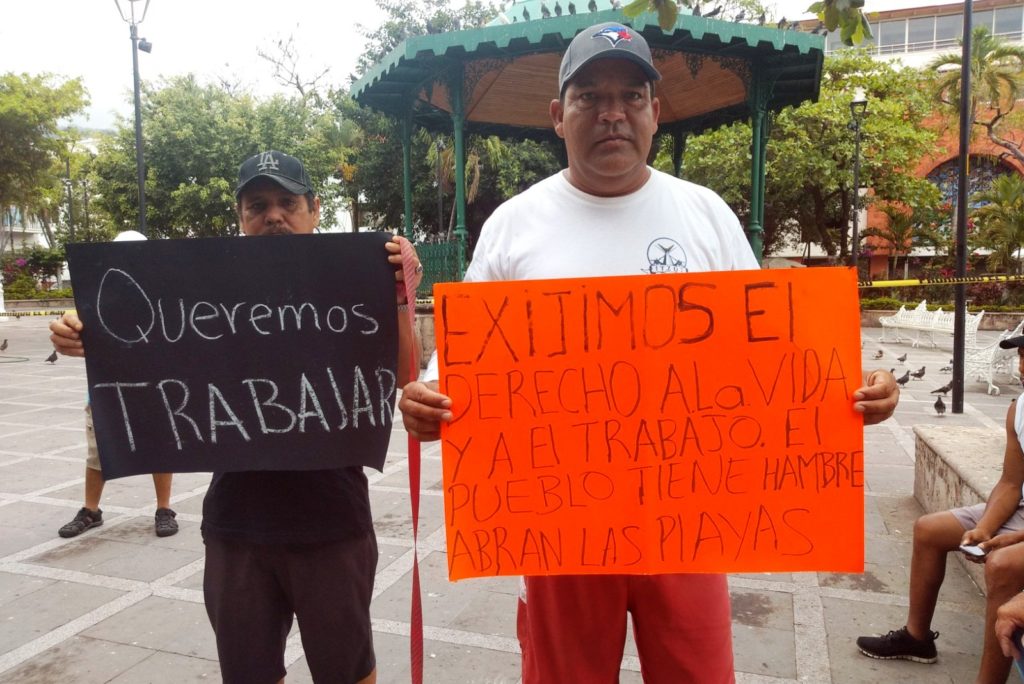 LA
Queremos
TRABAJAR
EXIJIMOS El
DERECHO A La VIDA
Y A El TRABAJO. El
PUEBLO TIENE HAMBRE
ABRAN LAS PlAYAS